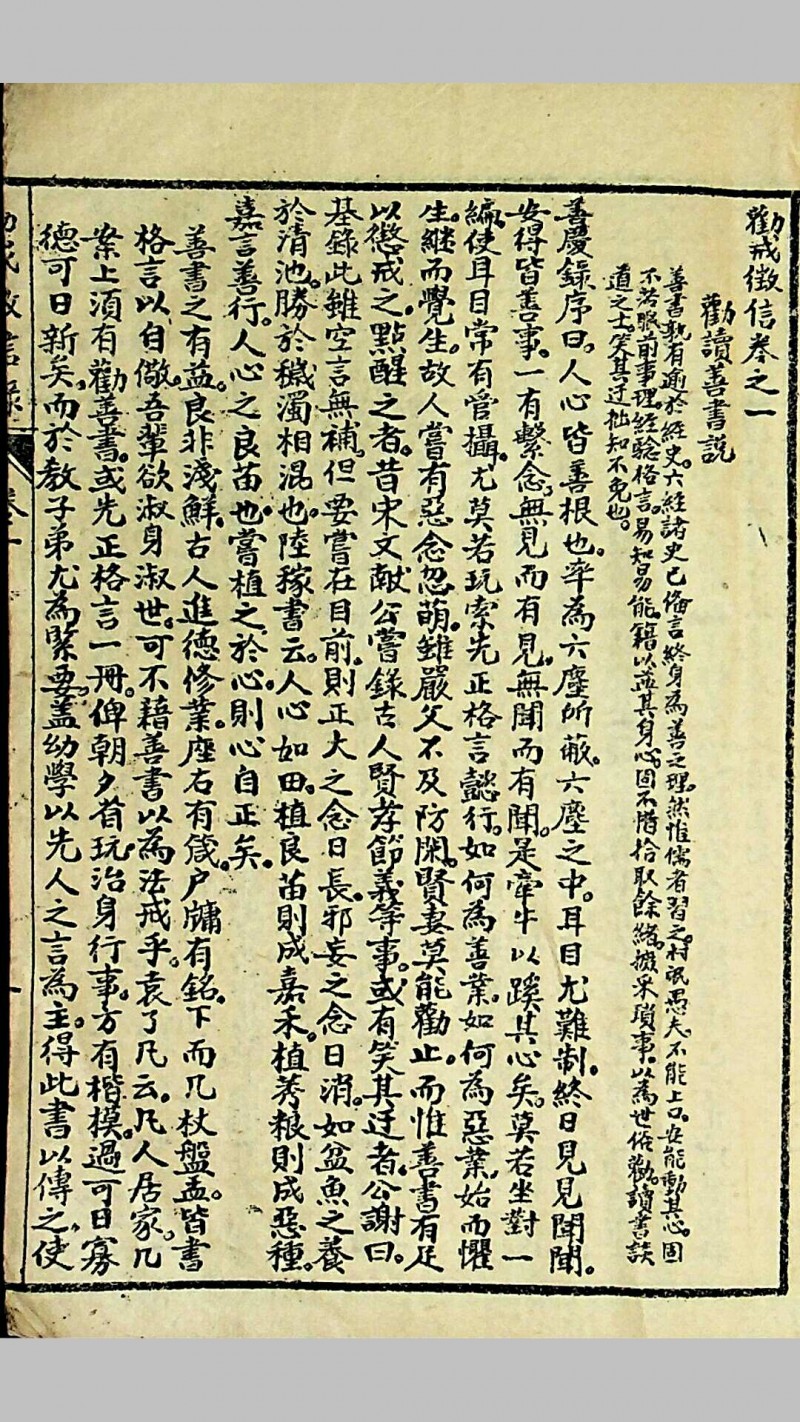 勸戒徵信卷之一
勸讀善書說
善書孰有逾於經史。六經諸史已備言終身為善之理。然惟儒者習之。村氓愚夫。不能上口。安能動其心。固
不若眼前事理。經驗格言。易知易能。籍以益其身心。固不惜拾取餘緒。摭采瑣事。以為世俗勸。讀書談
道之士。笑其迂拙知不免也。
善慶錄序曰。人心皆善根也。率為六塵所蔽。六塵之中。耳目尤難制。終日見見聞聞。
安得皆善事。一有繫念。無見而有見。無聞而有聞。是牽牛以蹊其心矣。莫若坐對一
編。使耳目常有管攝。尤莫若玩索先正格言懿行。如何為善業。如何為惡業。始而懼
生。繼而覺生。故人嘗有惡念忽萌。雖嚴父不及防閑。賢妻莫能勸止。而惟善書有足
以懲戒之。點醒之者。昔宋文献公嘗錄古人賢孝節義等事。或有笑其迂者。公謝曰。
基錄此雖空言無補。但要嘗在目前。則正大之念日長。邪妄之念日消。如盆魚之養
於清池。勝於穢濁相混也。陸稼書云。人心如田。植良苗則成嘉禾。植莠稂則成惡種。
嘉言善行。人心之良苗也。嘗植之於心。則心自正矣。
善書之有益。良非淺鮮。古人進德修業。座右有箴。户牖有銘。下而几杖盤盂。皆書
格言以自儆。吾輩欲淑身淑世。可不藉善書以為法戒乎。袁了凡云。凡人居家。几
案上須有勸善書。或先正格言一冊。俾朝夕省玩。治身行事。方有楷模。過可日寡
德可日新矣。而於教子弟尤為緊要。蓋幼學以先人之言為主。得此書以傳之。使